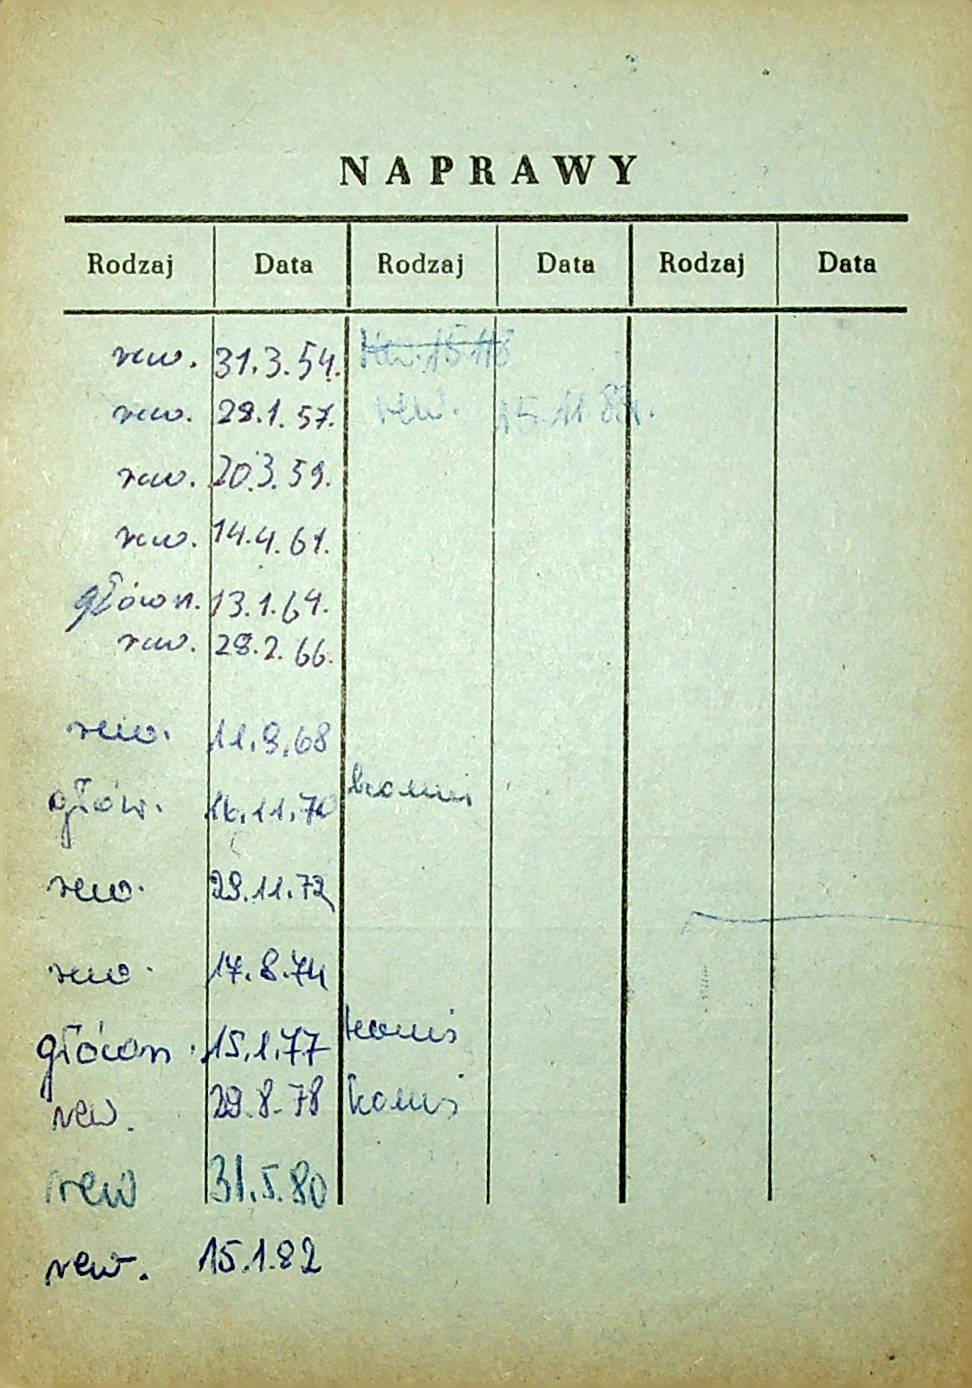 NAPRAWY
Rodzaj Data Rodzaj Data Rodzaj Data
rew. 31.3.54.
rew. 28.1.57. rew. 15.11.84.
rew. 20.3.59.
rew. 14.4.61.
główn. 13.1.64.
rew. 28.2.66.
rew. 11.9.68
głów. 16.11.70
rew. 29.11.72
rew. 17.8.74
główn. 15.1.77
rew. 29.8.78
rew 31.5.80
rew. 15.1.82